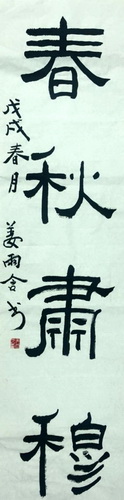 春秋肅穆
戊戌春月 姜雨含书